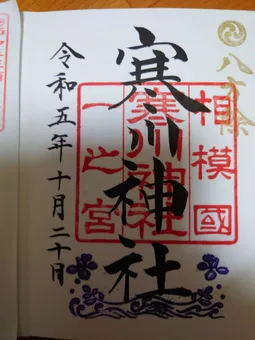 八方除
寒川神社
相模國
寒川神社
一之宮
令和五年十月二十日